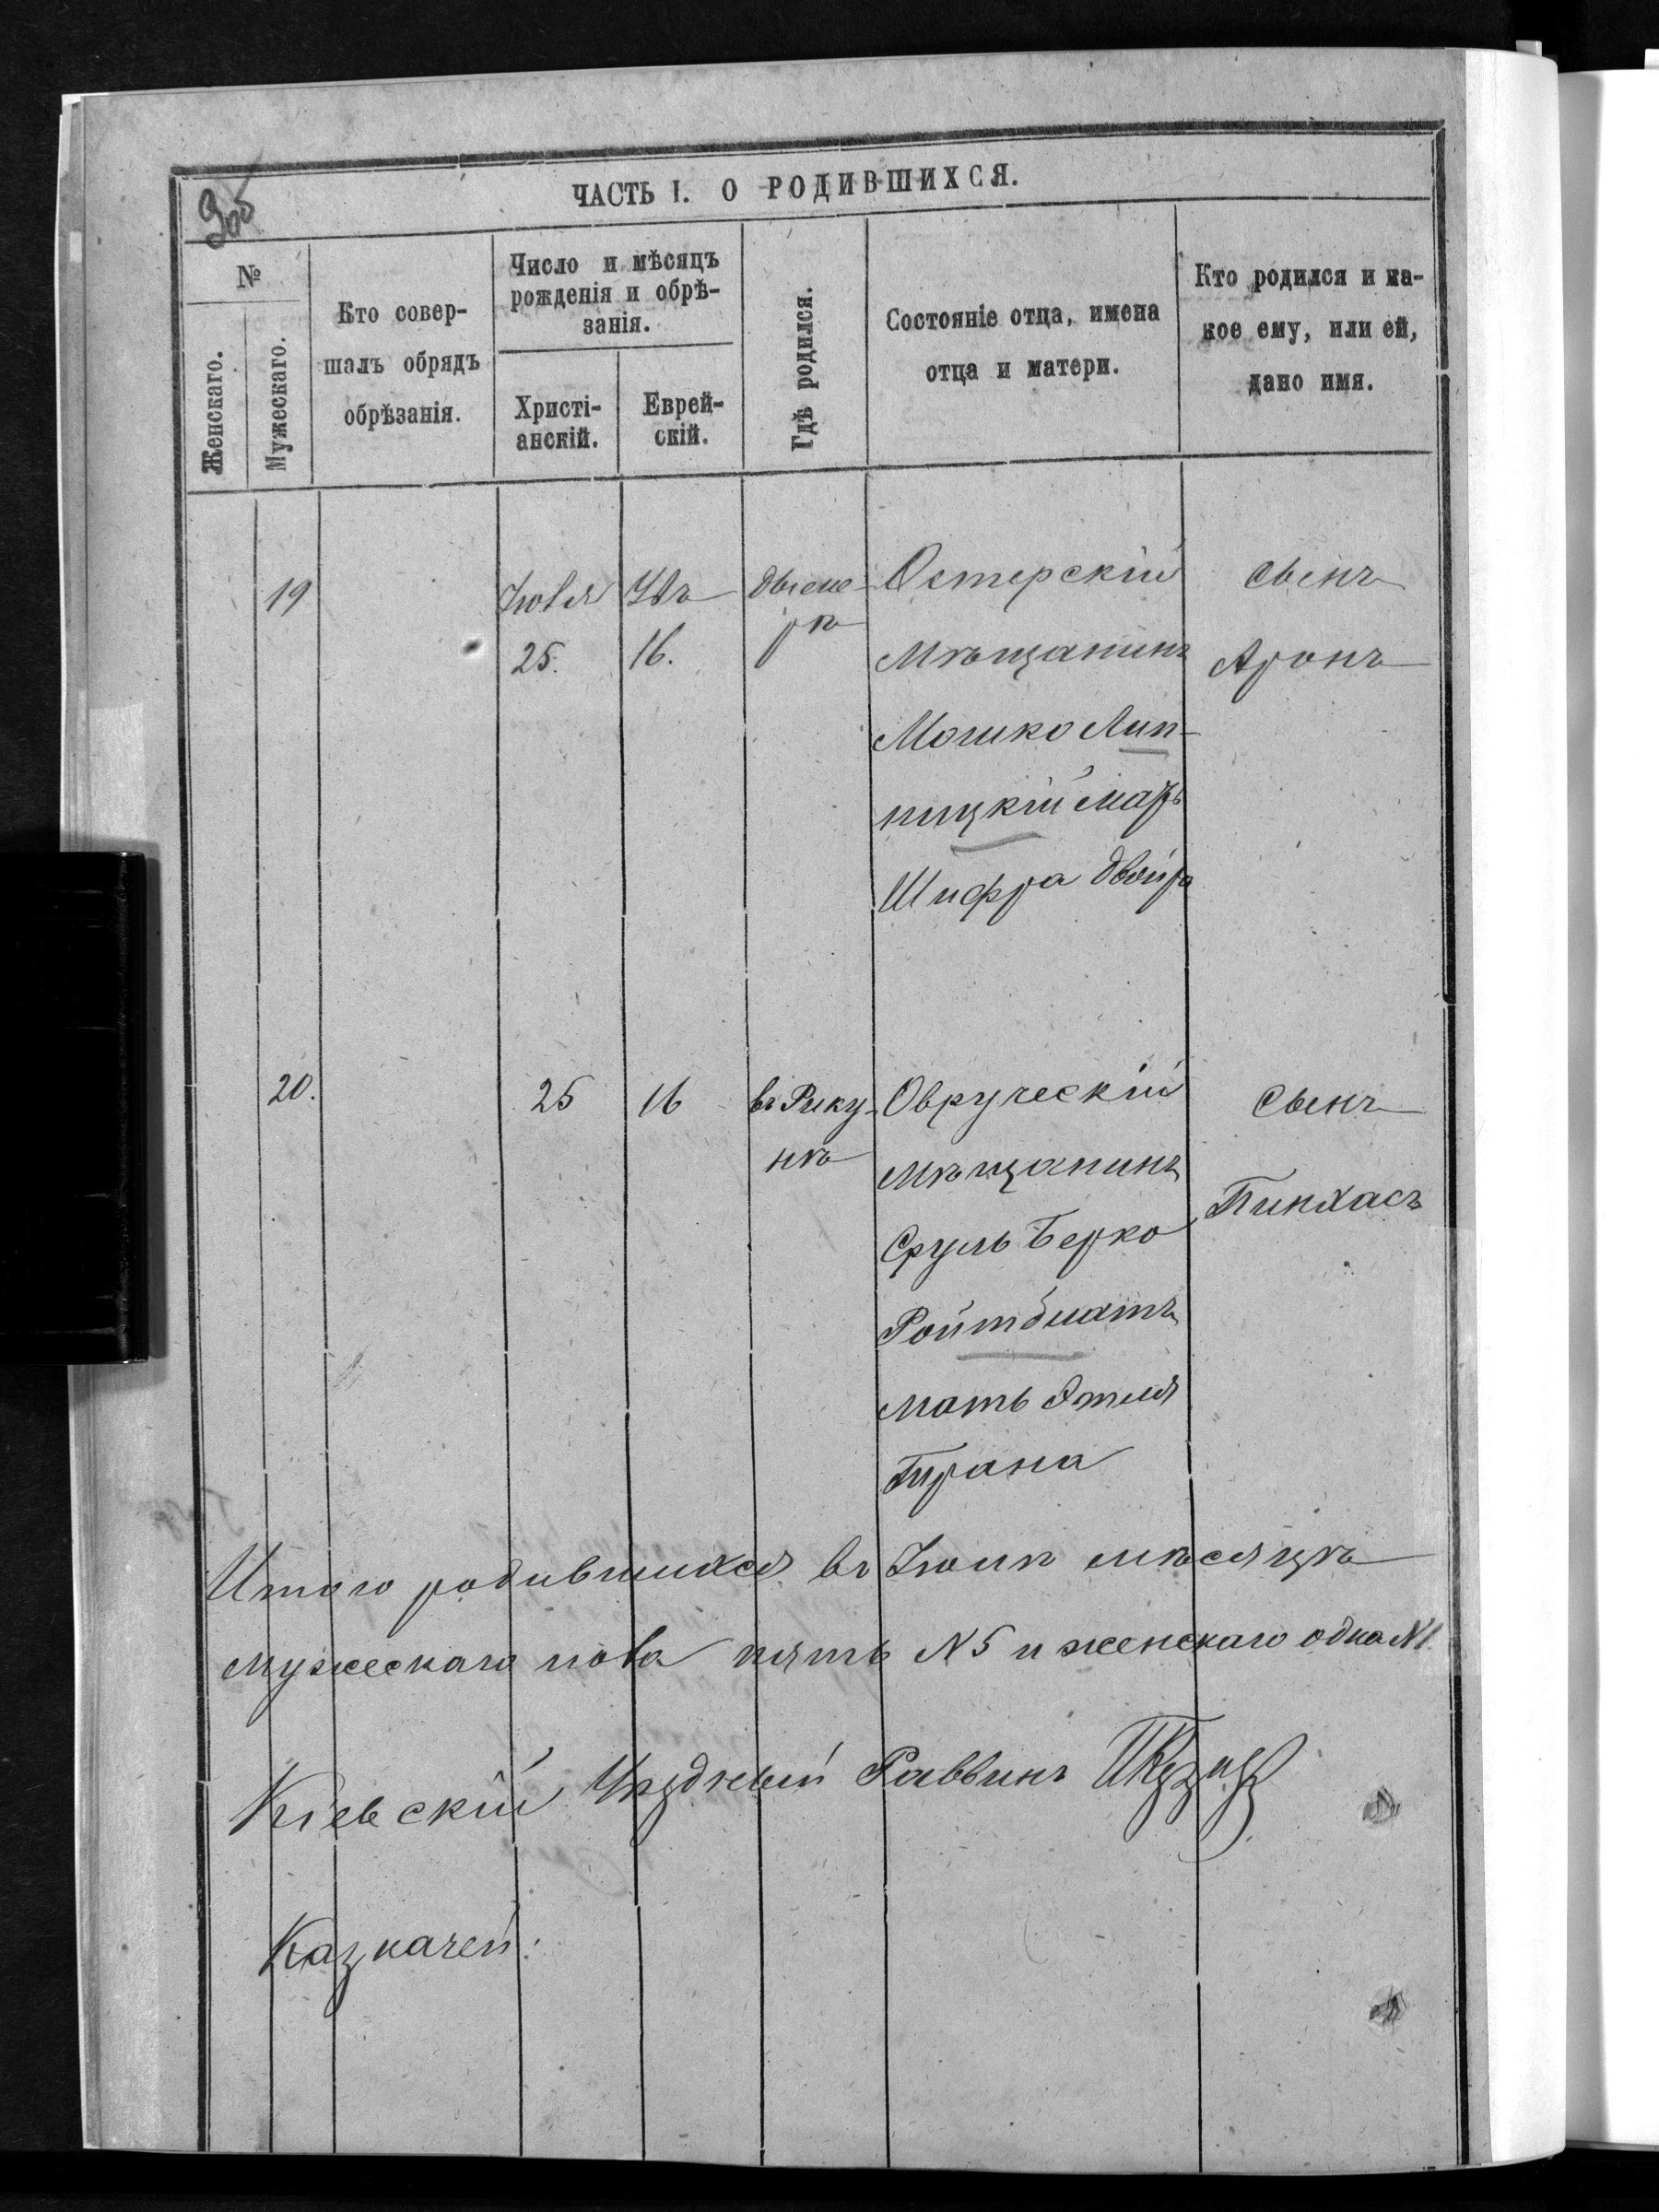 ЧАСТЬ I. О РОДИВШИХСЯ.
№
Женскаго.
Мужескаго.
Кто совер-
шалъ обрядъ
обрѣзанія.
Число и мѣсяцъ
рожденія и обрѣ-
занія.
Христі-
анскій.
Еврей-
скій.
Гдѣ родился.
Состояніе отца, имена
отца и матери.
Кто родился и ка-
кое ему, или ей,
дано имя.
19
Іюля
25.
16.
Остерскій
Мѣщанинъ
Мошко Лип-
ницкій Мать
Шифра Двойра
Сынъ
Аронъ
20.
25
16
въ Рику-
нѣ
Овручскій
Мѣщанинъ
Сруль Берко
Ройтблатъ
Мать Этля
Сынъ
Пинхасъ
Итого родившихся въ Іюлѣ мѣсяцѣ
мужескаго пола пять №5 и женскаго одна №1.
Кіевскій Уѣздный Раввинъ
Казначей: